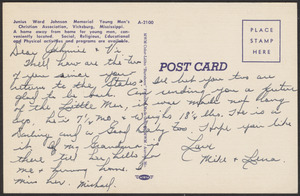 Junius Ward Johnson Memorial Young Men's
Christian Association, Vicksburg, Mississippi.
A home away from home for young men, con-
veniently located. Social, Religious, Educational
and Physical activities and programs are available.
A-3100
PLACE
STAMP
HERE
POST CARD
Dear Johnnie & Vi
Well how are the two
of you since your
return to the States?
I'll bet you two are
glad to be back. Am sending you a picture
of The Little Man, it was made not long
ago. He's 7½ mo. & Weighs 18½ lbs. He is a
Darling and a Good Baby too. Hope you like
it. My Grandma
there to help
me & now home. I
Miss her.
Love
Mike & Lena
Michael.